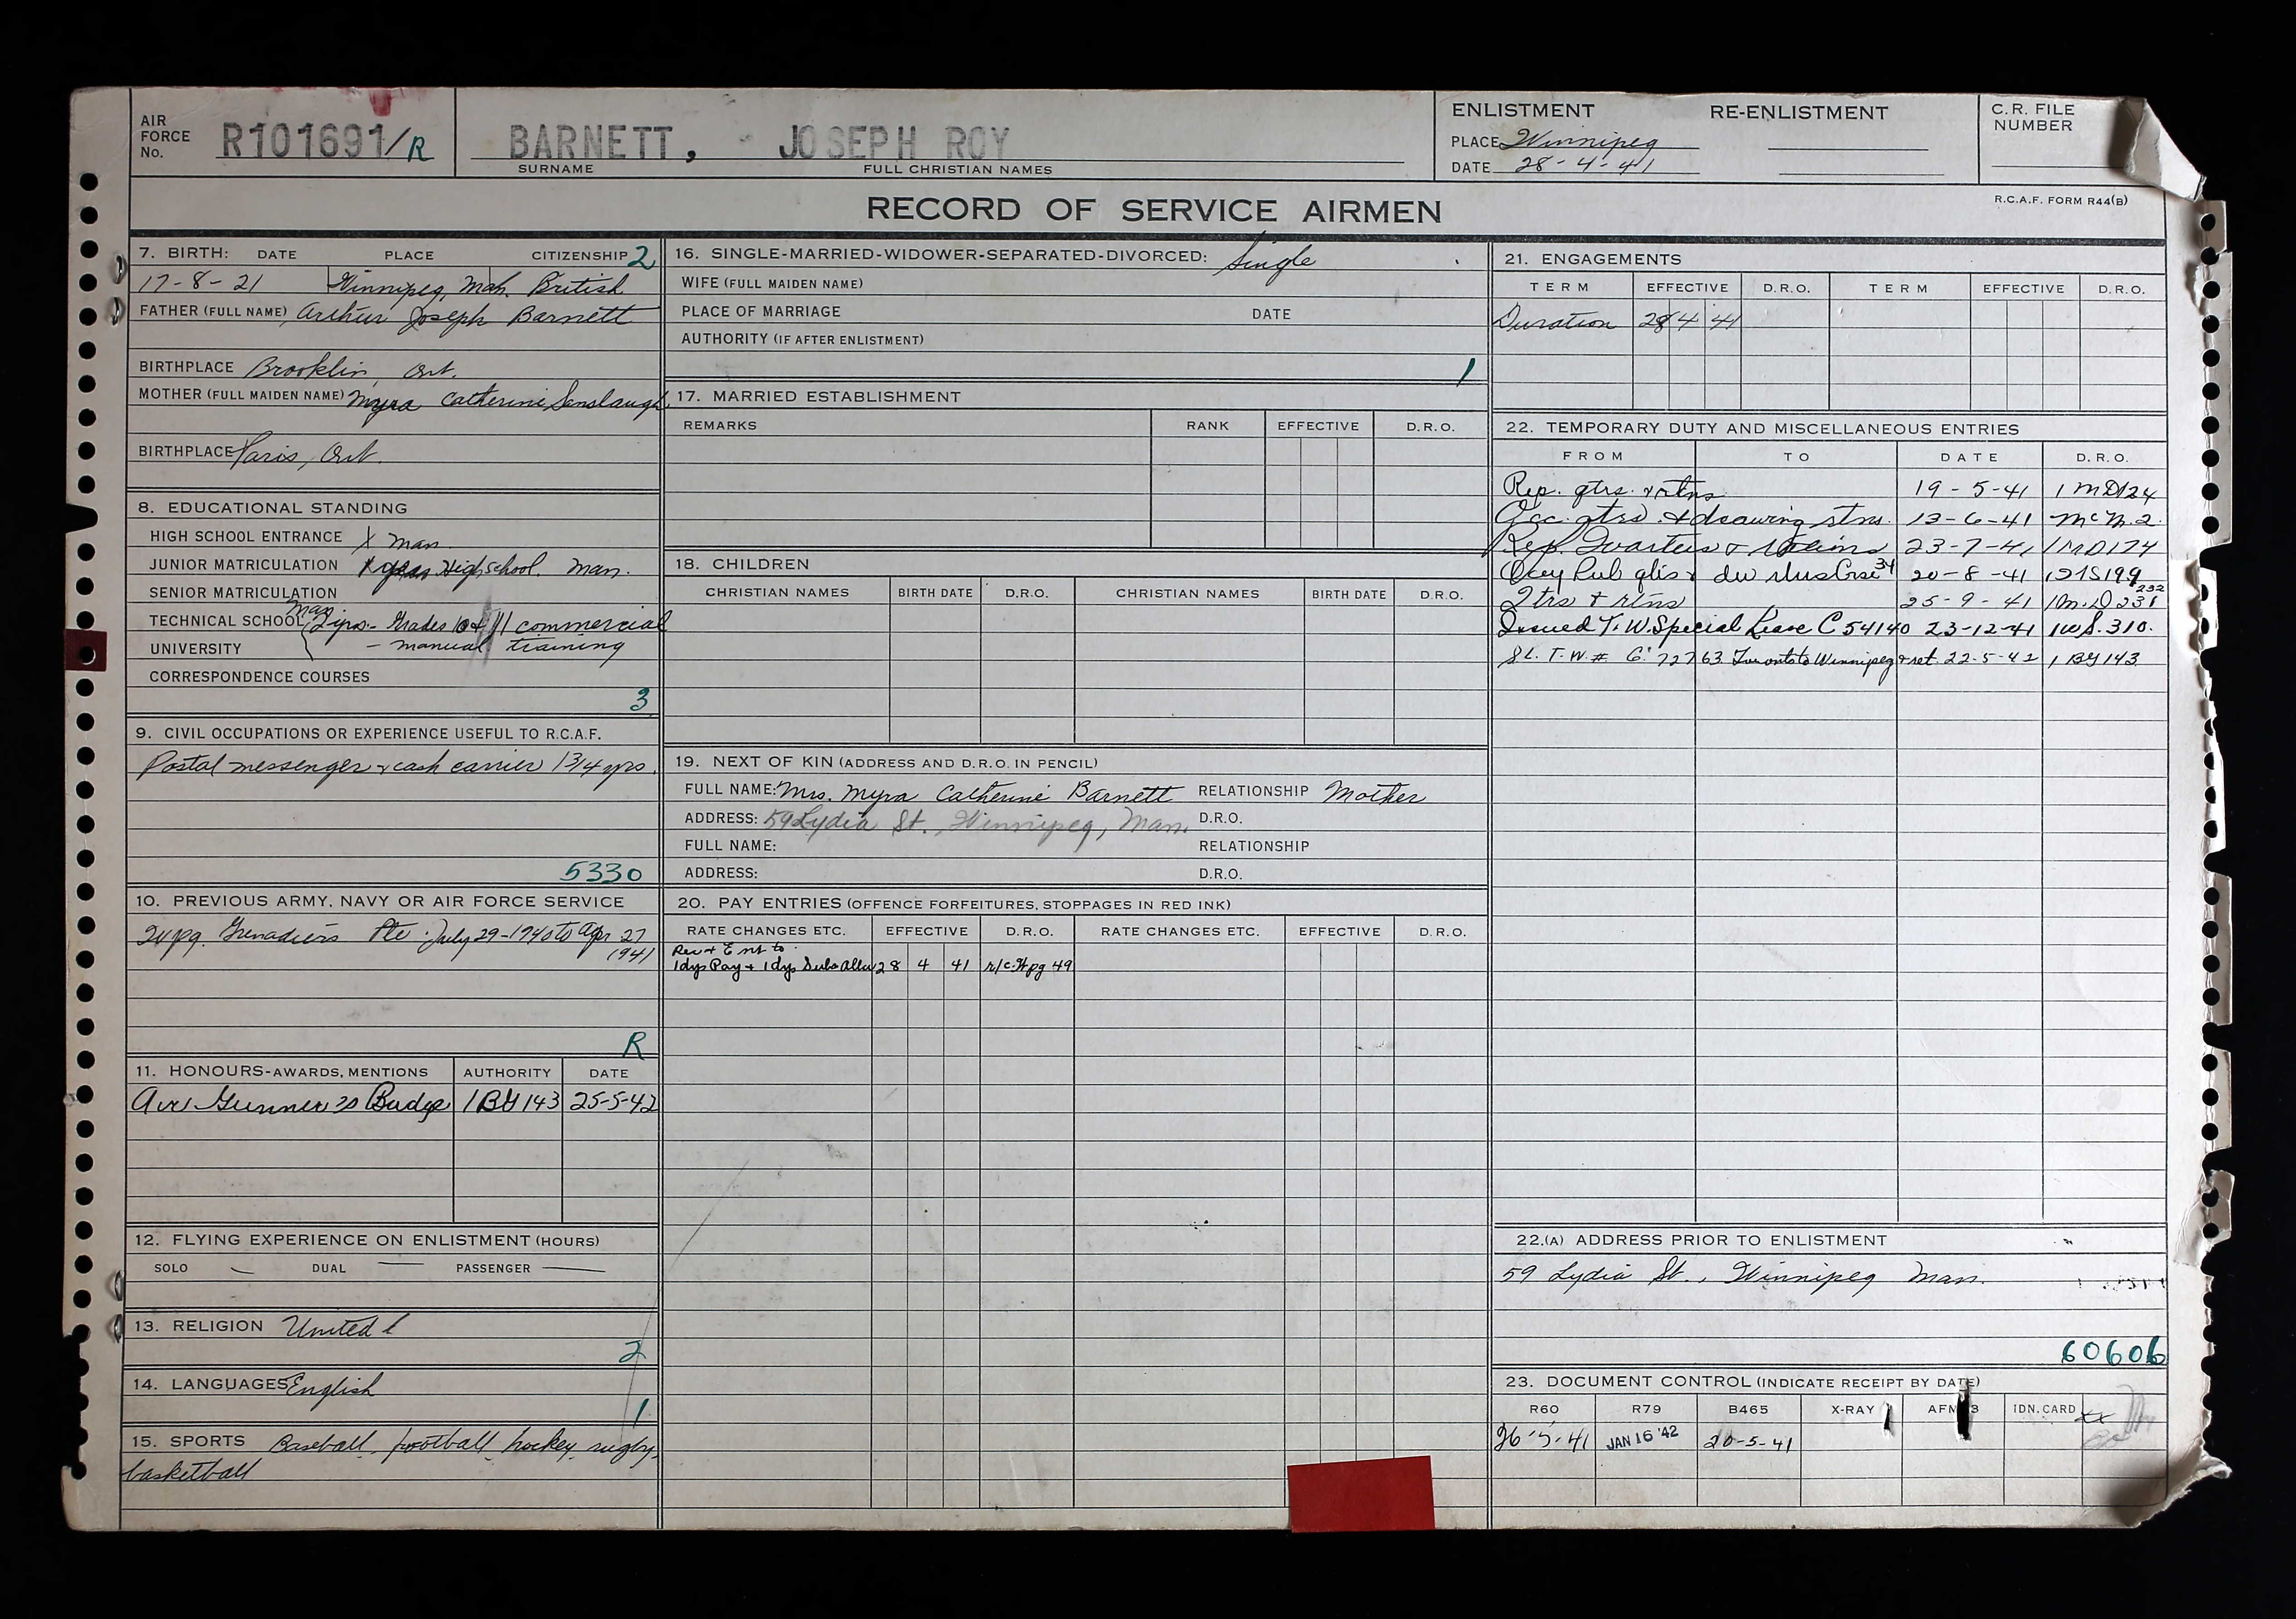 AIR FORCE No. R101691/R
BARNETT, JOSEPH ROY
SURNAME FULL CHRISTIAN NAMES
ENLISTMENT RE-ENLISTMENT
PLACE Winnipeg
DATE 28-4-41
C.R. FILE NUMBER
RECORD OF SERVICE AIRMEN
R.C.A.F. FORM R44(B)
7. BIRTH: DATE PLACE CITIZENSHIP 2
17-8-21 Winnipeg, Man. British
FATHER (FULL NAME) Arthur Joseph Barnett
BIRTHPLACE Brooklin, Ont.
MOTHER (FULL MAIDEN NAME) Myra Catherine
BIRTHPLACE Paris, Ont.
8. EDUCATIONAL STANDING
HIGH SCHOOL ENTRANCE X Man.
JUNIOR MATRICULATION X High School. Man.
SENIOR MATRICULATION
Man
TECHNICAL SCHOOL Grades 10 & 11 commercial
UNIVERSITY - manual training
CORRESPONDENCE COURSES
3
9. CIVIL OCCUPATIONS OR EXPERIENCE USEFUL TO R.C.A.F.
Postal messenger & cash carrier 1 3/4 yrs.
5330
10. PREVIOUS ARMY, NAVY OR AIR FORCE SERVICE
Wpg. Grenadiers Pte. July 29-1940 to Apr 27
1941
R
11. HONOURS-AWARDS, MENTIONS AUTHORITY DATE
Air Gunner's Badge 1BG143 25-5-42
12. FLYING EXPERIENCE ON ENLISTMENT (HOURS)
SOLO — DUAL — PASSENGER —
13. RELIGION United
2
14. LANGUAGES English
1
15. SPORTS Baseball, football, hockey, rugby,
basketball
16. SINGLE-MARRIED-WIDOWER-SEPARATED-DIVORCED: Single
WIFE (FULL MAIDEN NAME)
PLACE OF MARRIAGE DATE
AUTHORITY (IF AFTER ENLISTMENT)
1
17. MARRIED ESTABLISHMENT
REMARKS RANK EFFECTIVE D.R.O.
18. CHILDREN
CHRISTIAN NAMES BIRTH DATE D.R.O. CHRISTIAN NAMES BIRTH DATE D.R.O.
19. NEXT OF KIN (ADDRESS AND D.R.O. IN PENCIL)
FULL NAME: Mrs. Myra Catherine Barnett RELATIONSHIP Mother
ADDRESS: 59 Lydia St., Winnipeg, Man. D.R.O.
FULL NAME: RELATIONSHIP
ADDRESS: D.R.O.
20. PAY ENTRIES (OFFENCE FORFEITURES, STOPPAGES IN RED INK)
RATE CHANGES ETC. EFFECTIVE D.R.O. RATE CHANGES ETC. EFFECTIVE D.R.O.
Rev & Ent to
1dys Pay & 1dys Subs Allw 28 4 41 r/c Wpg 49
21. ENGAGEMENTS
TERM EFFECTIVE D.R.O. TERM EFFECTIVE D.R.O.
Duration 28 4 41
22. TEMPORARY DUTY AND MISCELLANEOUS ENTRIES
FROM TO DATE D.R.O.
Rep. qtrs. & rtns 19-5-41 1 MD124
Occ. qtrs. & drawing rtns. 13-6-41
Rep. Quarters & Rations 23-7-41 1MD174
20-8-41
Qtrs & rtns 25-9-41
Issued T.W. Special Leave C54140 23-12-41 1W.S.310.
S.L. T.W.# G.72763 Toronto to Winnipeg & ret. 22-5-42 1 BG143
22.(A) ADDRESS PRIOR TO ENLISTMENT
59 Lydia St., Winnipeg Man.
60606
23. DOCUMENT CONTROL (INDICATE RECEIPT BY DATE)
R60 R79 B465 X-RAY AFM 3 IDN. CARD
26-5-41 JAN 16 '42 20-5-41